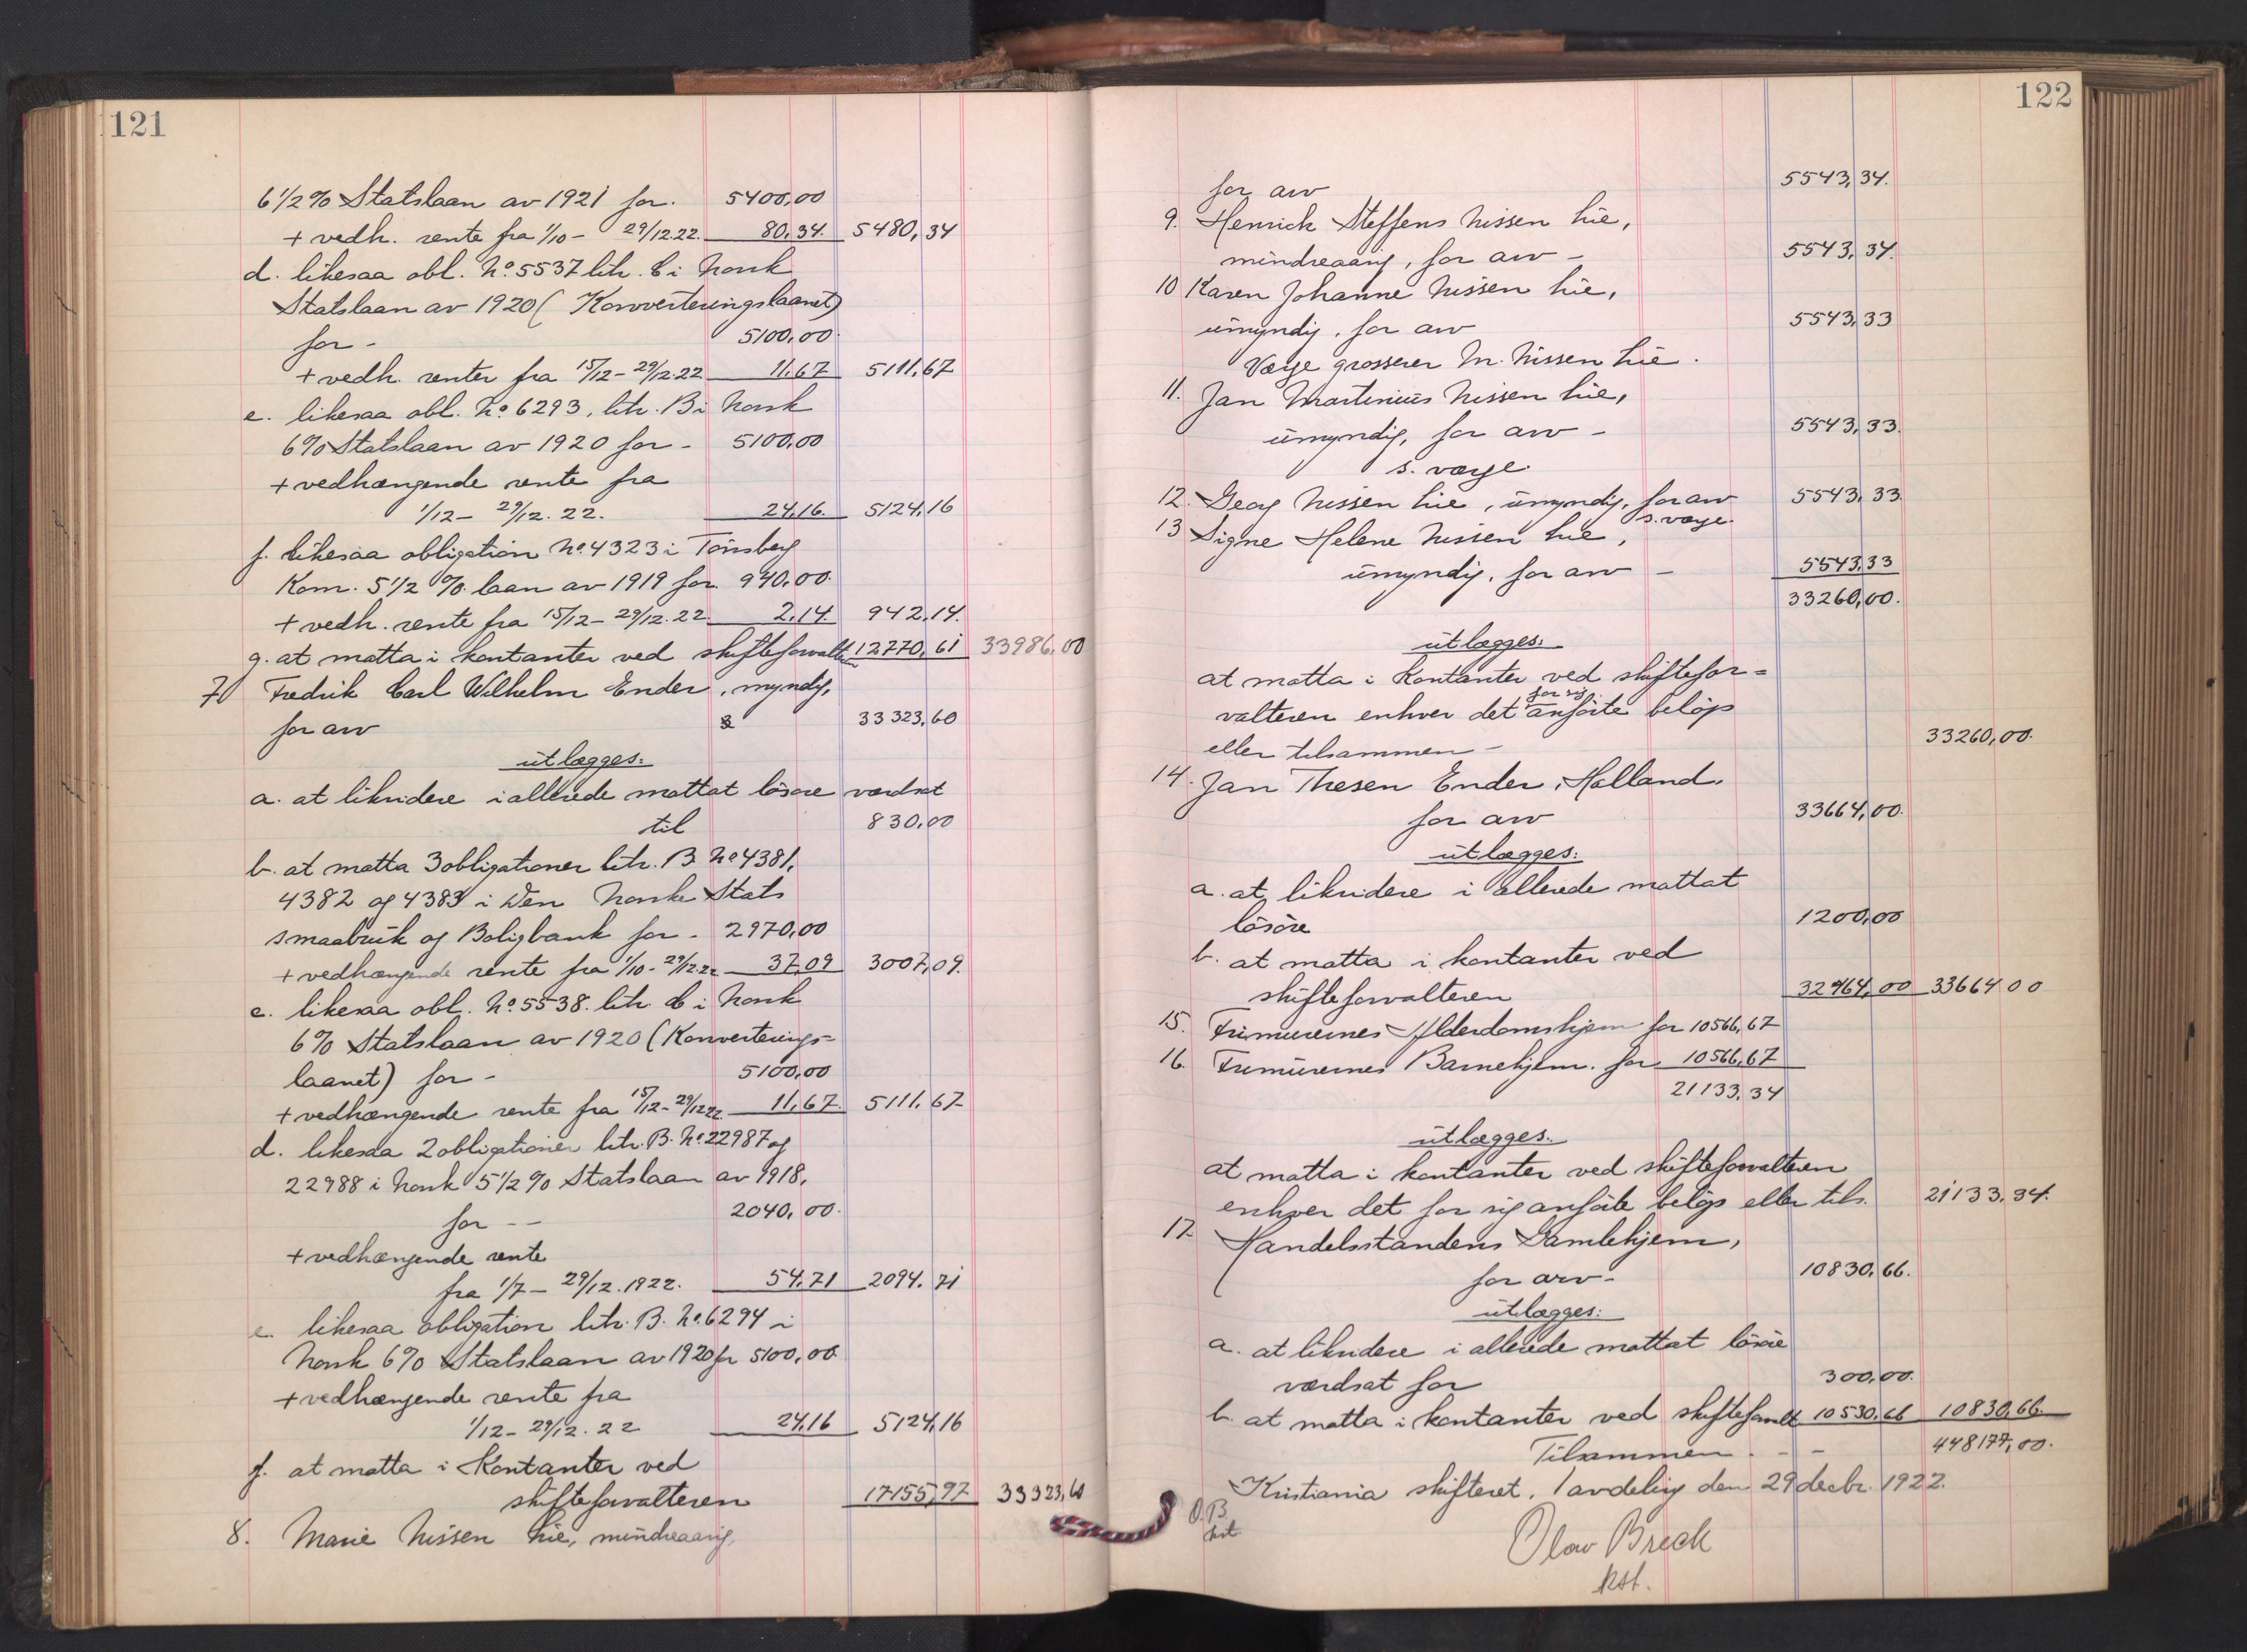 121
6 1/2 % Statslaan av 1921 for. 5400,00
+ vedh. rente fra 1/10 - 29/12.22. 80,34. 5480,34
d. likesaa obl. No. 5537 litr. C i Norsk
Statslaan av 1920 ( Konverteringslaanet)
for - 5100,00.
+ vedh. renter fra 15/12 - 29/12.22 11,67 5111,67
e. likesaa obl. No. 6293, litr. B i Norsk
6% Statslaan av 1920 for - 5100,00
+ vedhængende rente fra
1/12 - 29/12. 22. 24,16. 5124,16
f. likesaa obligation No. 4323 i Tønsberg
Kom. 5 1/2 %. laan av 1919 for 940,00.
+ vedh. rente fra 15/12 - 29/12.22. 2,14. 942,14.
g. at motta i kontanter ved skifteforvalter 12770,61 33986,00
7) Fredrik Carl Wilhelm Ender, myndig,
for arv 33323,60
utlægges:
a. at likvidere i allerede mottat løsøre værdsat
til 830,00
b. at motta 3 obligationer litr. B No 4381,
4382 og 4383 i Den Norske Stats
smaabruk og Boligbank for - 2970,00
+ vedhængende rente fra 1/10 - 29/12.22 37,09 3007,09.
c. likesaa obl. No. 5538. litr. C i Norsk
6% Statslaan av 1920 (Konverterings-
laanet) for - 5100,00
+ vedhængende rente fra 15/12 - 29/12 22. 11,67. 5111,67
d. likesaa 2 obligationer litr. B. No. 22987 og
22988 i Norsk 5 1/2 % Statslaan av 1918,
for -- 2040,00.
+ vedhængende rente
fra 1/7 - 29/12. 1922. 54,71 2094,71
e. likesaa obligation litr. B. No. 6294 i
Norsk 6% Statslaan av 1920 for 5100,00
+ vedhængende rente fra
1/12 - 29/12. 22 24,16 5124,16
f. at motta i Kontanter ved
skifteforvalteren 17155,97 33323,60
8. Marie Nissen Lie, mindreaarig,
122
for arv 5543,34.
9. Henrick Steffens Nissen Lie,
mindreaarig, for arv - 5543,34.
10 Karen Johanne Nissen Lie,
umyndig, for arv 5543,33
Værge grosserer M. Nissen Lie.
11. Jan Martinius Nissen Lie,
umyndig, for arv - 5543,33.
s. værge.
12. Georg Nissen Lie, umyndig, for arv 5543,33.
s. værge.
13 Signe Helene Nissen Lie,
umyndig, for arv - 5543,33
33260,00.
utlægges:
at motta i Kontanter ved skiftefor=
valteren enhver det for sig anførte beløp
eller tilsammen - 33260,00.
14. Jan Thesen Ender, Holland,
for arv 33664,00.
utlægges:
a. at likvidere i allerede mottat
løsøre 1200,00
b. at motta i kontanter ved
skifteforvalteren 32464,00 33664 00
15. Frimurernes Alderdomshjem for 10566,67
16. Frimurernes Barnehjem. for 10566,67
21133,34
utlægges.
at motta i kontanter ved skifteforvalteren
enhver det for sig anførte beløp eller tils. 21133,34.
17 Handelsstandens Gamlehjem,
for arv - 10830,66.
utlægges:
a. at likvidere i allerede mottat løsøre
værdsat for 300,00.
b. at motta i kontanter ved skifteforvalt 10530,66 10830,66.
Tilsammen - - 448177,00.
Kristiania skifteret, 1 avdeling den 29 decbr. 1922.
O. B.
kst
Olav Breck
kst.